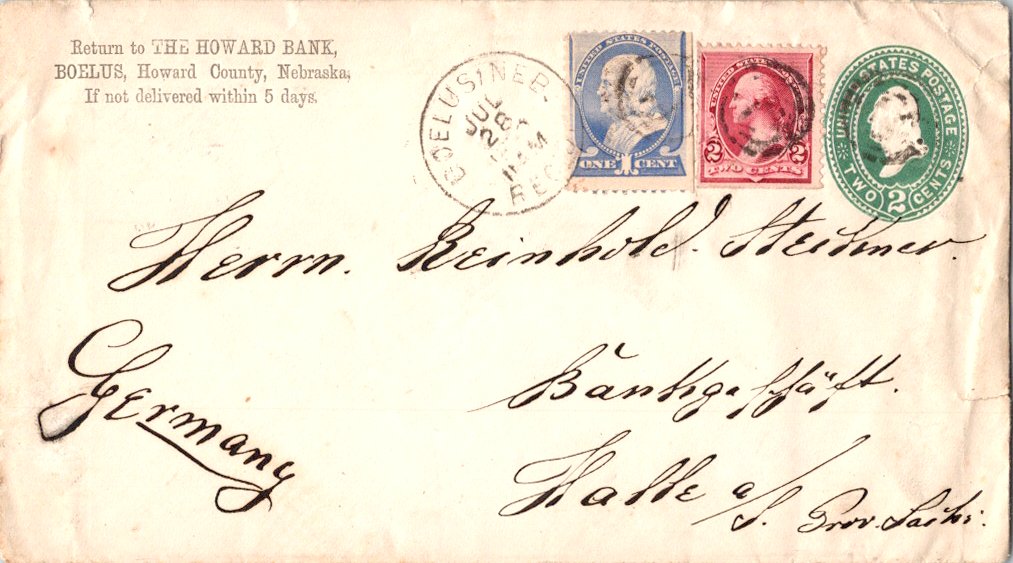 Return to THE HOWARD BANK,
BOELUS, Howard County, Nebraska,
If not delivered within 5 days.
BOELUS, NEB.
REC'D
UNITED STATES POSTAGE
ONE 1 CENT
UNITED STATES POSTAGE
2 2
TWO CENTS
UNITED STATES POSTAGE
TWO 2 CENTS
Herrn. Reinhold. Steckner.
Bankgeschäft.
Halle a/S. Prov.
Germany